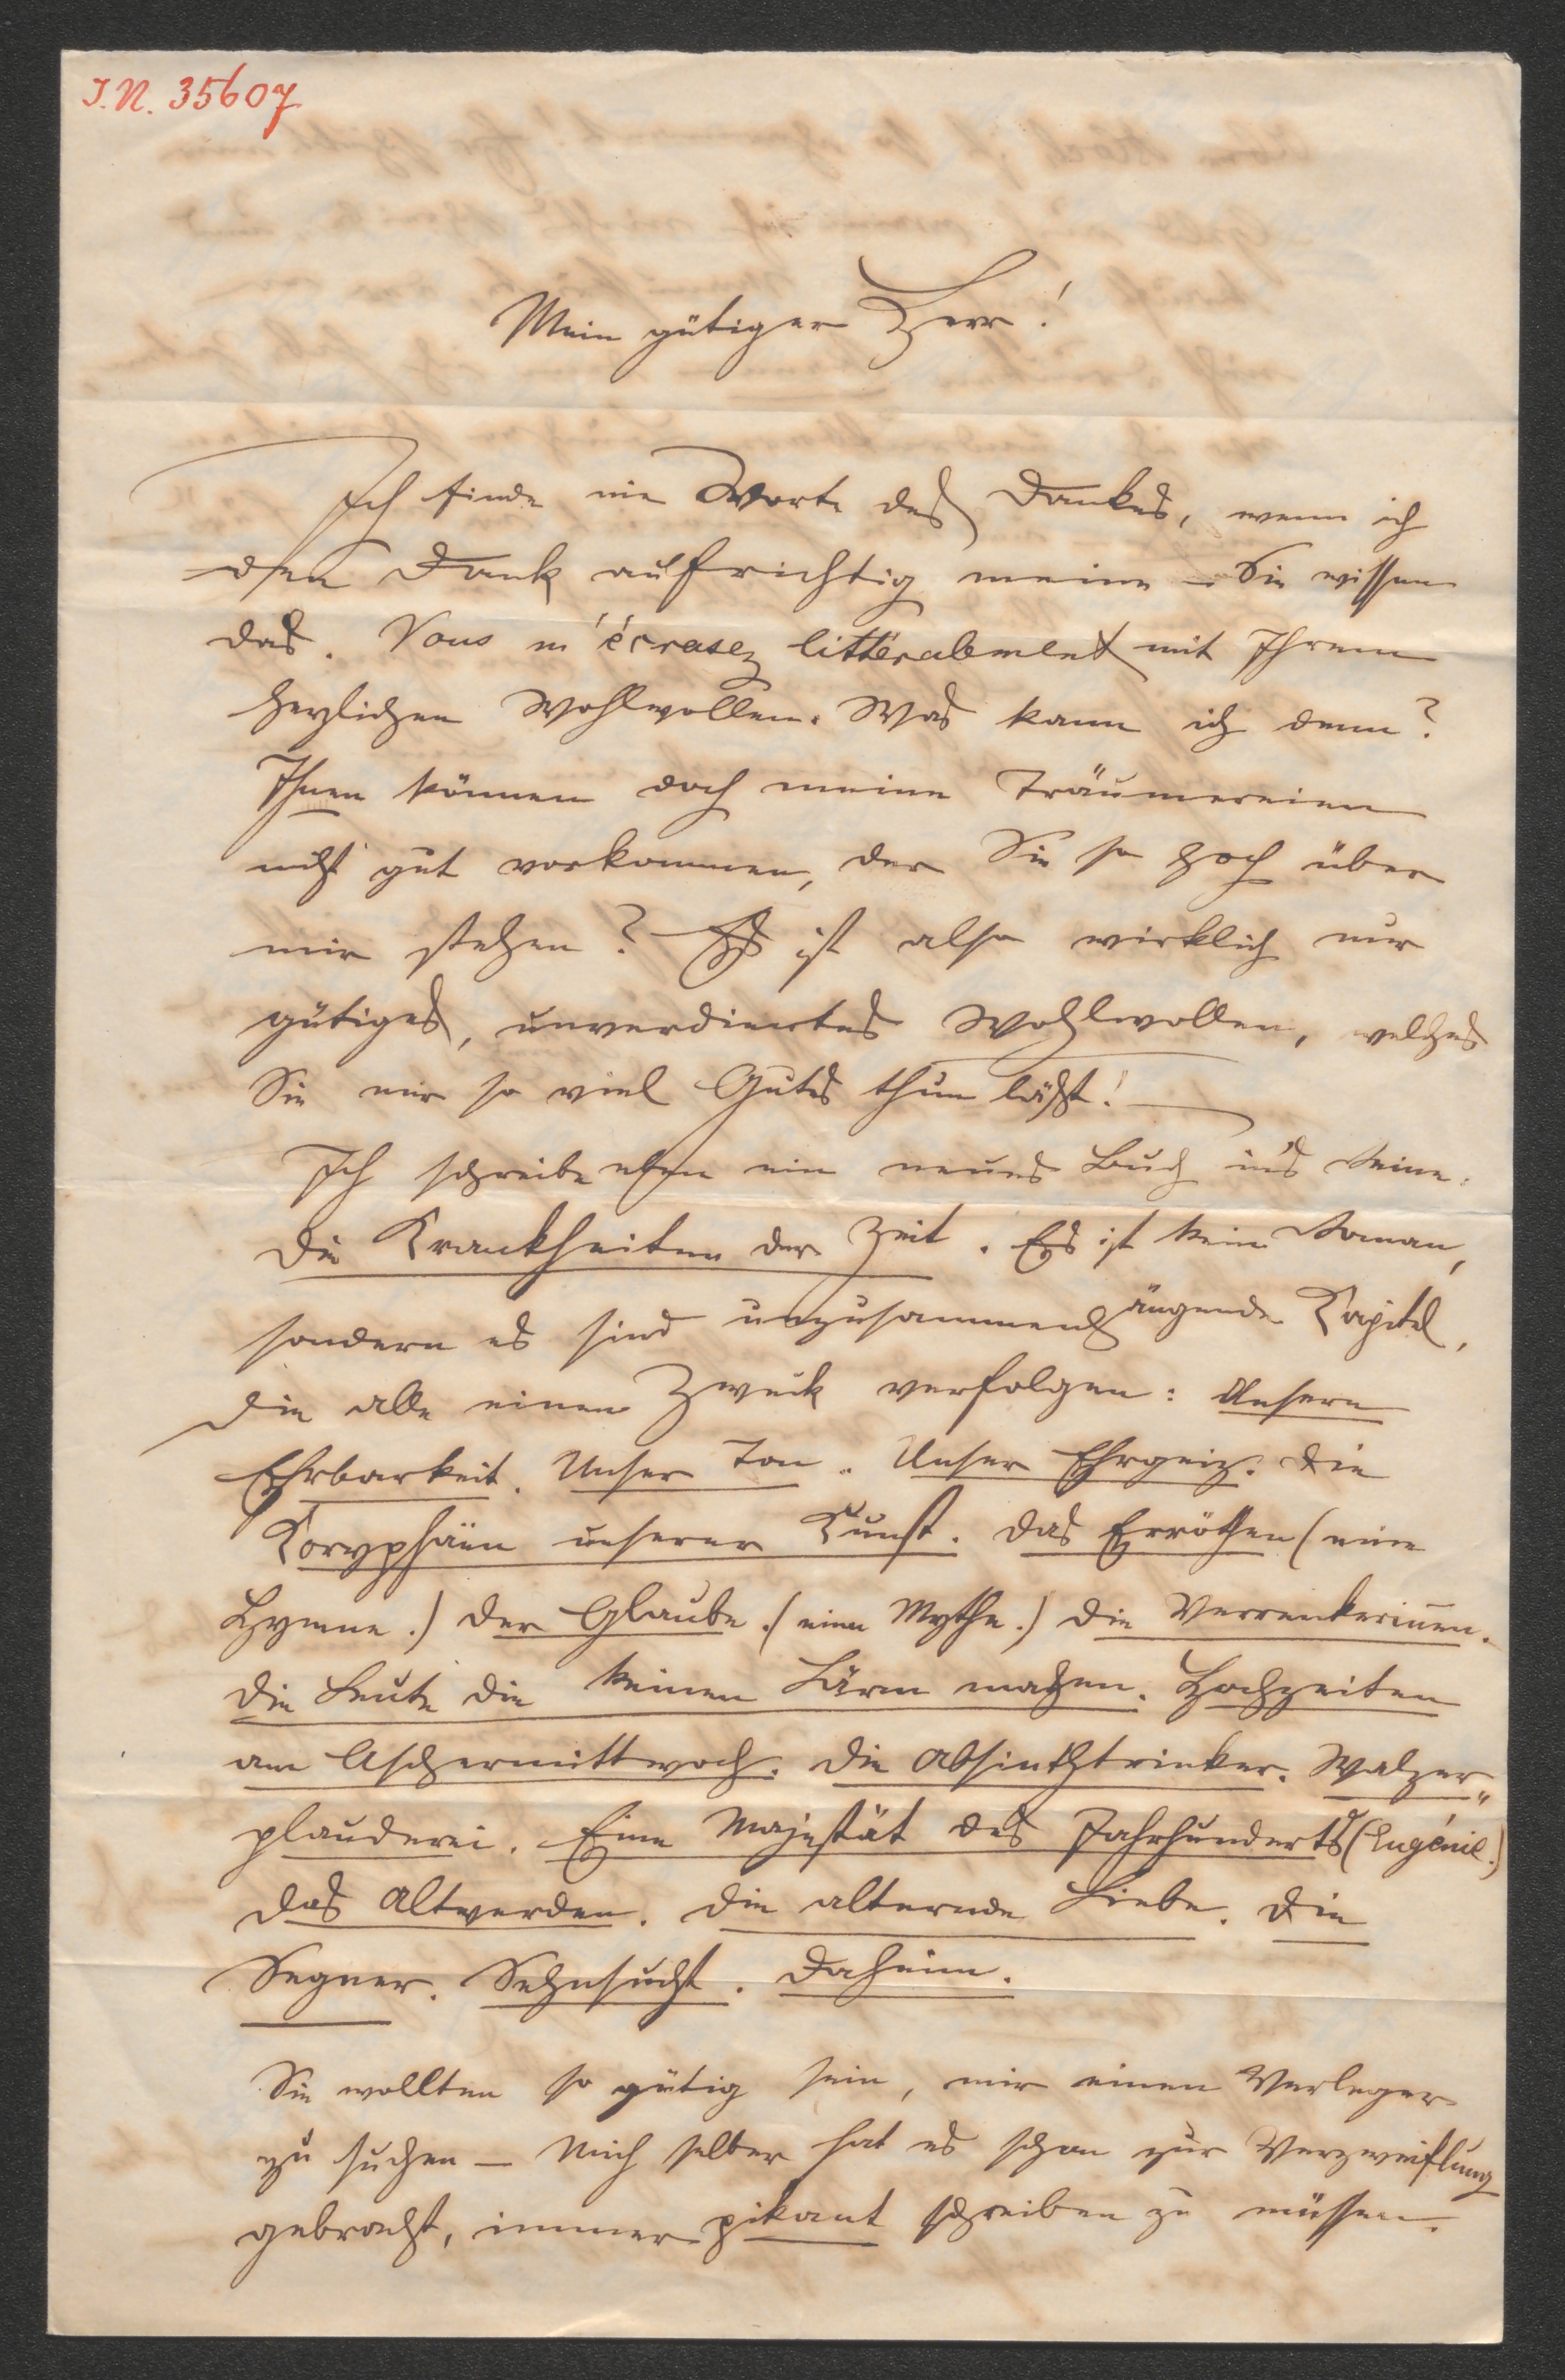 I.N. 35607
Mein gütiger Herr!
Ich finde nie Worte des Dankes, wenn ich
den Dank aufrichtig meine – Sie wissen
das. Vous m'écrasez littéralement mit Ihrem
herzlichen Wohlwollen. Was kann ich denn?
Ihnen können doch meine Träumereien
nicht gut vorkommen, der Sie so hoch über
mir stehen? Es ist also wirklich nur
gütiges, unverdientes Wohlwollen, welches
Sie mir so viel Gutes thun läßt! –
Ich schreibe eben ein neues Buch ins Reine:
Die Krankheiten der Zeit. Es ist kein Roman,
sondern es sind unzusammenhängende Kapitel,
die alle einen Zweck verfolgen: Unsere
Ehrbarkeit. Unser Ton. Unser Ehrgeiz. Die
Koryphäen unserer Kunst. Das Erröthen (eine
Hymne.) Der Glaube. (eine Mythe.) Die Verrenkerinnen.
Die Leute die keinen Lärm machen. Hochzeiten
am Aschermittwoch. Die Absinthtrinker. Walzer„
plauderei. Eine Majestät des Jahrhunderts (Eugénie.)
Das Altwerden. Die alternde Liebe. Die
Segner. Sehnsucht. Daheim.
Sie wollten so gütig sein, mir einen Verleger
zu suchen – Mich selber hat es schon zur Verzweiflung
gebracht, immer pikant schreiben zu müssen.